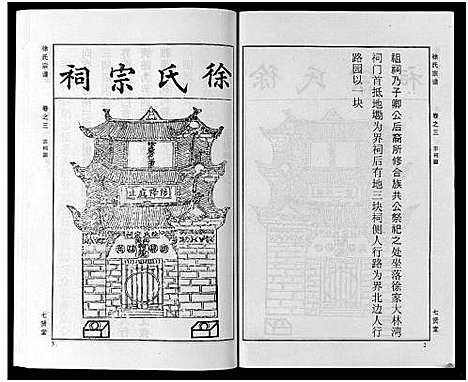 徐氏宗谱
卷之三
宗祠图
祖祠乃子卿公后裔所修合族共公祭祀之处坐落徐家大林湾
祠门首抵地塝为界祠后有地三块祠侧人行路为界北边人行
路园以一块
七贤堂
2
徐氏宗祠
徐氏宗谱
卷之三
宗祠图
七贤堂
3